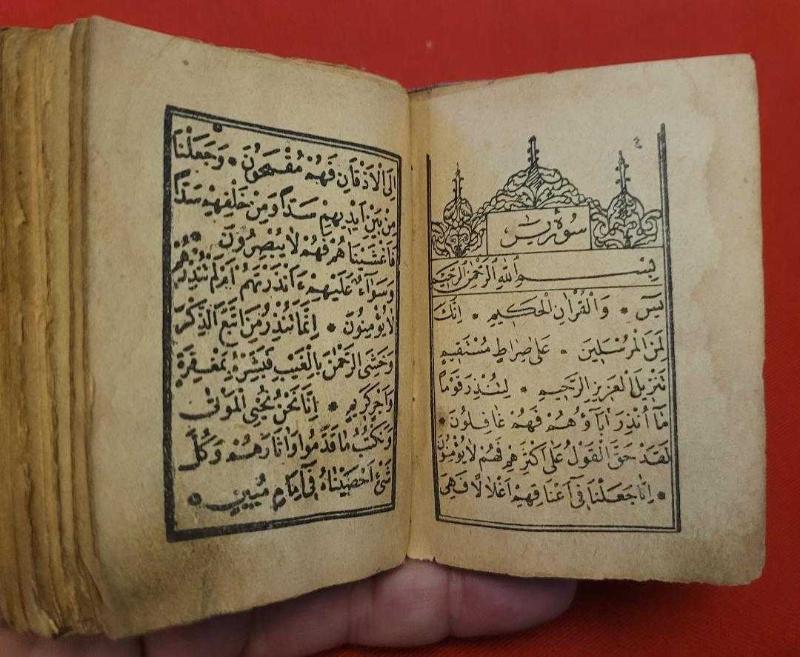 ٤
سورة يس
بسم الله الرحمن الرحيم
يس * وَالْقُرْاٰنِ الْحَكٖيمِ * اِنَّكَ
لَمِنَ الْمُرْسَلٖينَ * عَلٰى صِرَاطٍ مُسْتَقٖيمٍ
تَنْزٖيلَ الْعَزٖيزِ الرَّحٖيمِ * لِتُنْذِرَ قَوْمًا
مَا اُنْذِرَ اٰبَاؤُهُمْ فَهُمْ غَافِلُونَ *
لَقَدْ حَقَّ الْقَوْلُ عَلٰى اَكْثَرِهِمْ فَهُمْ لَا يُؤْمِنُونَ
* اِنَّا جَعَلْنَا فٖى اَعْنَاقِهِمْ اَغْلَالًا فَهِىَ
اِلَى الْاَذْقَانِ فَهُمْ مُقْمَحُونَ * وَجَعَلْنَا
مِنْ بَيْنِ اَيْدٖيهِمْ سَدًّا وَمِنْ خَلْفِهِمْ سَدًّا
فَاَغْشَيْنَاهُمْ فَهُمْ لَا يُبْصِرُونَ *
وَسَوَٓاءٌ عَلَيْهِمْ ءَاَنْذَرْتَهُمْ اَمْ لَمْ تُنْذِرْهُمْ
لَا يُؤْمِنُونَ * اِنَّمَا تُنْذِرُ مَنِ اتَّبَعَ الذِّكْرَ
وَخَشِىَ الرَّحْمٰنَ بِالْغَيْبِ فَبَشِّرْهُ بِمَغْفِرَةٍ
وَاَجْرٍ كَرٖيمٍ * اِنَّا نَحْنُ نُحْيِى الْمَوْتٰى
وَنَكْتُبُ مَا قَدَّمُوا وَاٰثَارَهُمْ وَكُلَّ
شَىْءٍ اَحْصَيْنَاهُ فٖٓى اِمَامٍ مُبٖينٍ *